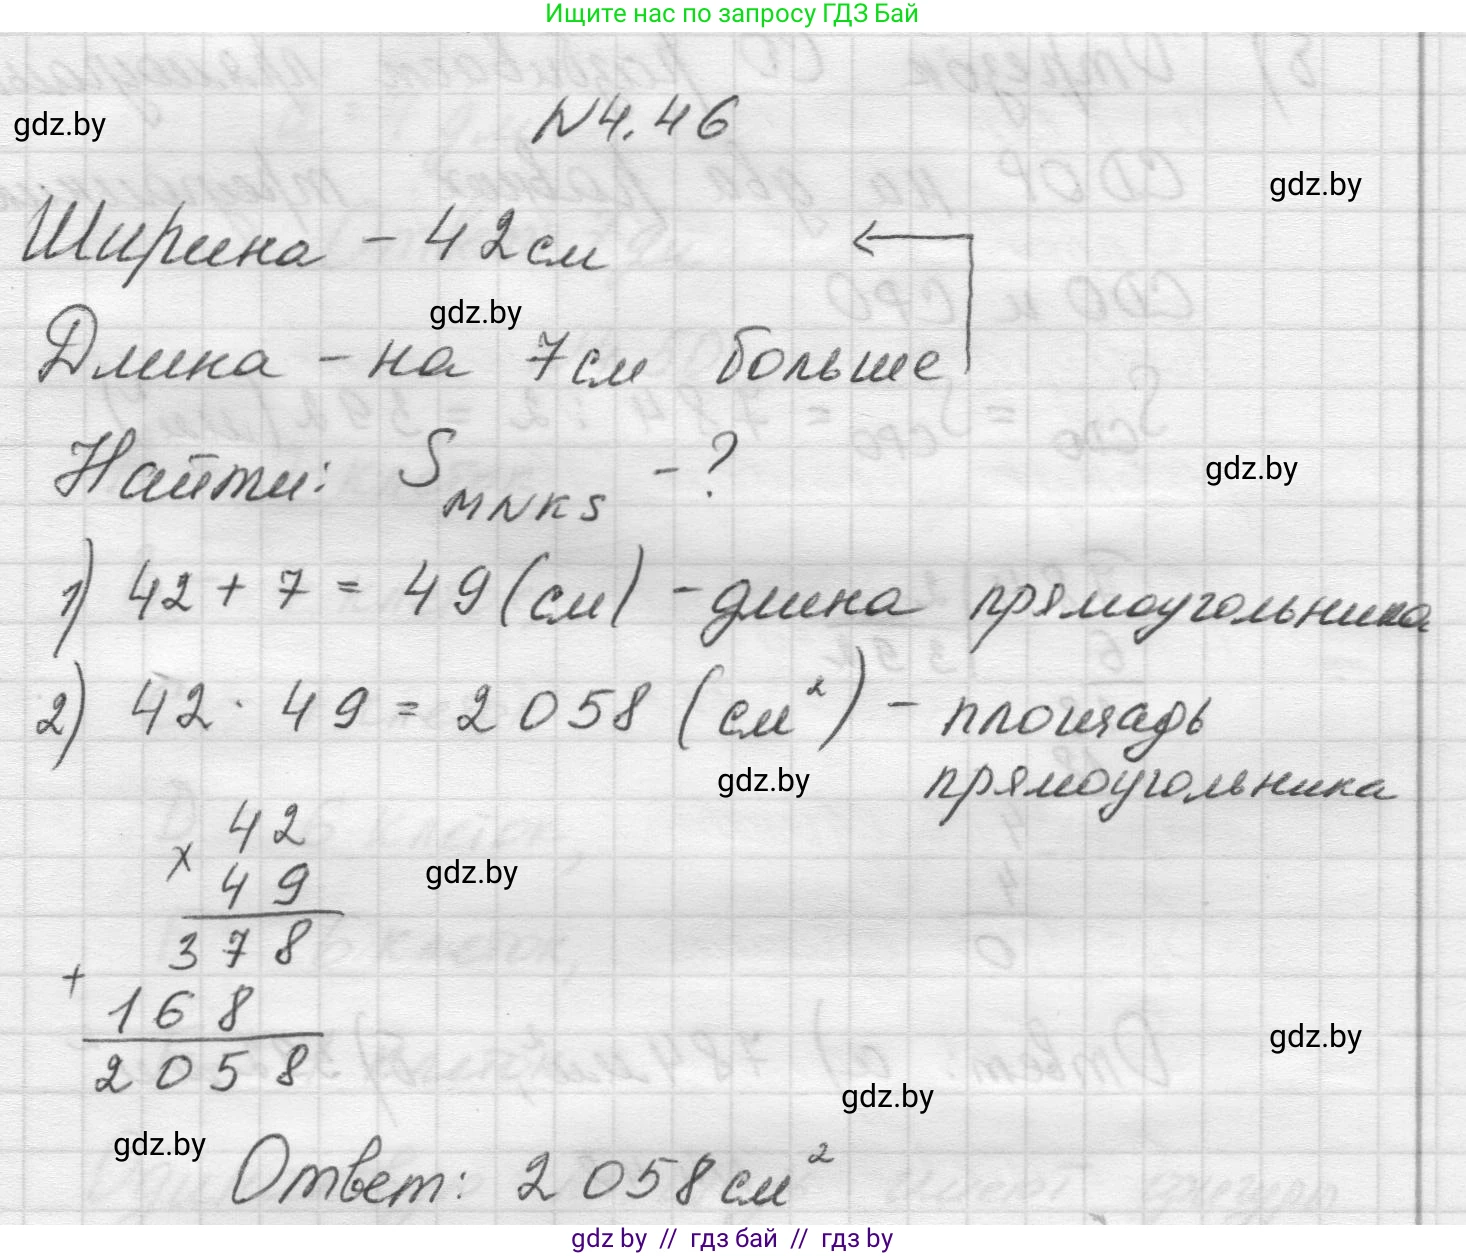 Ищите нас по запросу ГДЗ Бай
N 4.46
gdz.by
gdz.by
Ширина - 42 см
gdz.by
Длина - на 7 см больше
Найти: S MNKS - ?
gdz.by
1) 42 + 7 = 49 (см) - длина прямоугольника
2) 42 · 49 = 2058 (см²) - площадь
прямоугольника
gdz.by
42
x
49
gdz.by
378
+
168
2058
gdz.by
gdz.by
gdz.by
Ответ: 2058 см²
gdz by // гдз бай // гдз by